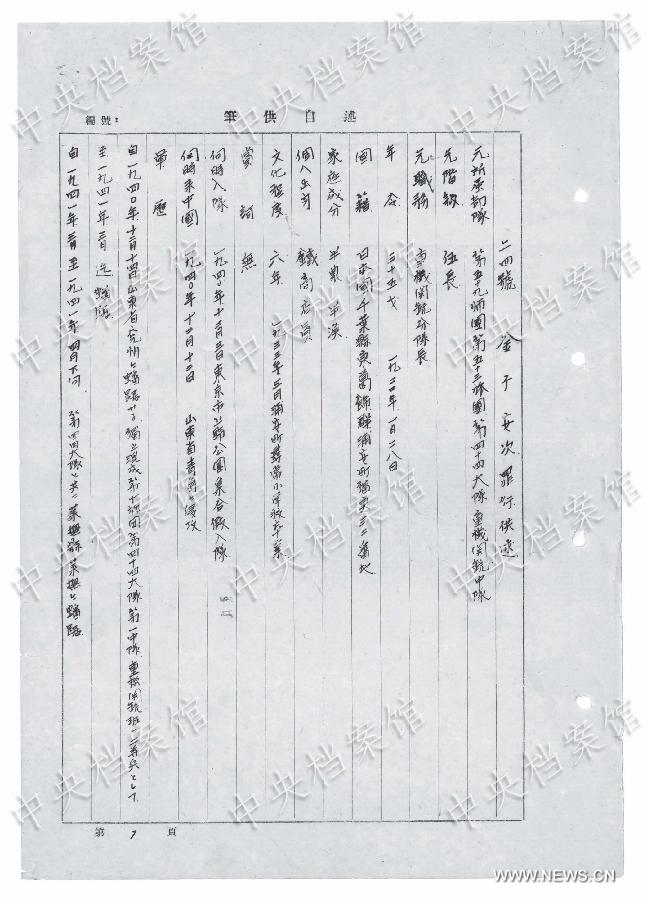 述自供筆
編號：
二四號 金子安次罪行供述
元所属部隊 第五十九師團第五十三旅團第四十四大隊重機関銃中隊
元階級 伍長
元職務 重機関銃分隊長
年令 三十五才 一九二〇年一月二八日
國籍 日本國千葉縣東葛飾郡浦安町猫実三三番地
家庭成分
個人出身 鐵商店員
文化程度 六年 一九三三年三月浦安町尋常小学校卒業
無
何時入隊 一九四〇年十二月三日東京市上野公園集合徴入隊
何時来中國 一九四〇年十二月十二日 山東省青島に侵攻
軍歴
自一九四〇年十二月十四日山東省
至一九四一年三月迄
自一九四一年三月至一九四一年四月下旬 第四四大隊と共に萊蕪縣萊蕪に蟠踞
第 7 頁
中央档案馆
WWW.NEWS.CN